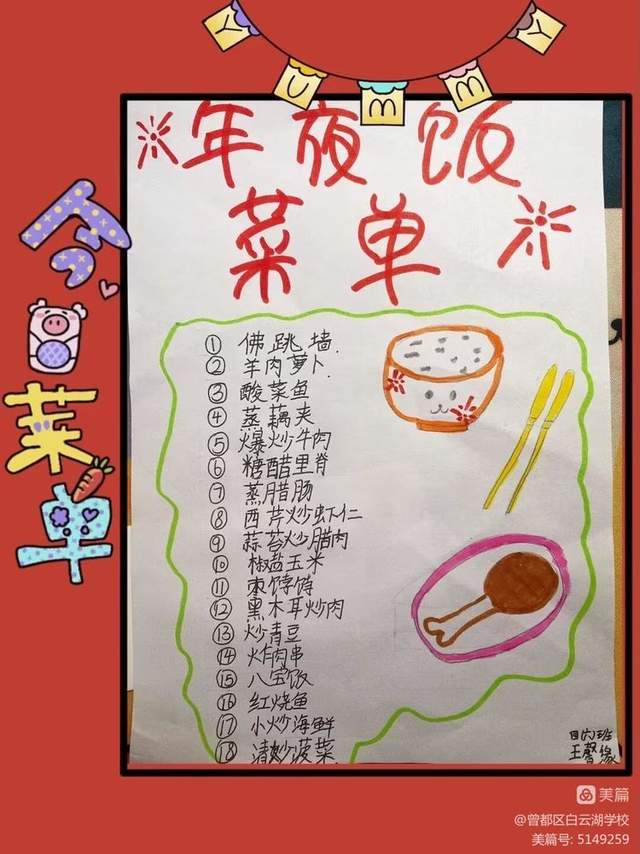 YUMMY
年夜饭
菜单
今日菜单
① 佛跳墙
② 羊肉萝卜
③ 酸菜鱼
④ 蒸藕夹
⑤ 爆炒牛肉
⑥ 糖醋里脊
⑦ 蒸腊肠
⑧ 西芹炒虾仁
⑨ 蒜苔炒腊肉
⑩ 椒盐玉米
⑪ 枣饽饽
⑫ 黑木耳炒肉
⑬ 炒青豆
⑭ 炸肉串
⑮ 八宝饭
⑯ 红烧鱼
⑰ 小炒海鲜
⑱ 清炒菠菜
四(六)班
王馨缘
美篇
@曾都区白云湖学校
美篇号: 5149259